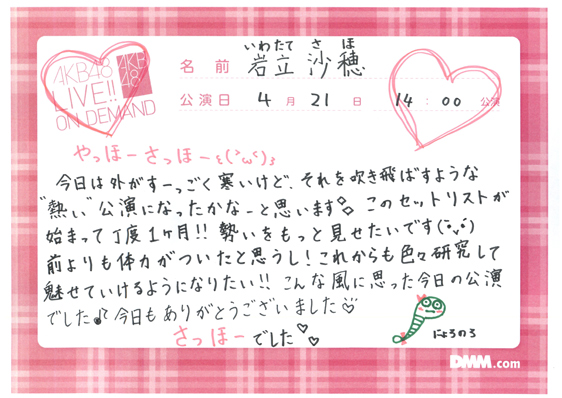 AKB48
LIVE!!
ON DEMAND
AKB
48
いわたて さほ
名前 岩立 沙穂
公演日 4月21日 14:00 公演
やっほーさっほーε(･ω･)з
今日は外がすーっごく寒いけど、それを吹き飛ばすような
"熱い"公演になったかなーと思います◇◇ このセットリストが
始まって丁度1ヶ月!! 勢いをもっと見せたいです(･ᴗ･)
前よりも体力がついたと思うし!これからも色々研究して
魅せていけるようになりたい!! こんな風に思った今日の公演
でした♪今日もありがとうございました♡
さっほーでした♡♡
にょろのろ
DMM.com